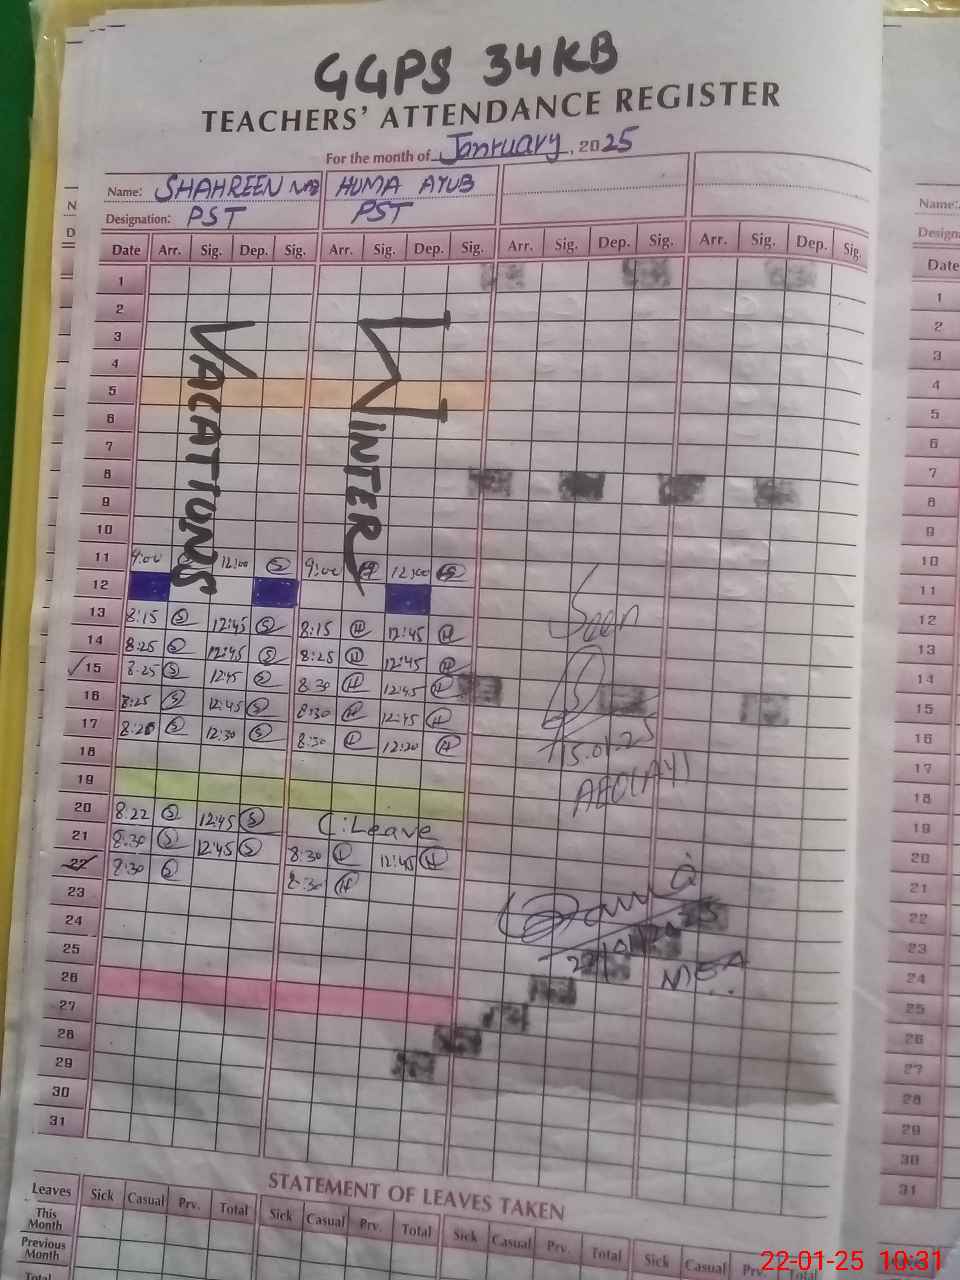 GGPS 34KB
TEACHERS' ATTENDANCE REGISTER
For the month of January, 2025
Name: SHAHREEN HUMA AYUB
Designation: PST PST
Date Arr. Sig. Dep. Sig. Arr. Sig. Dep. Sig. Arr. Sig. Dep. Sig. Arr. Sig. Dep. Sig.
1
2
3
4
5
6
7
8
9
10
VACATIONS
WINTER
11 9:00 S 12:00 S 9:00 H 12:00
12
13 8:15 S 12:45 S 8:15 H 12:45 H
14 8:25 S 12:45 S 8:25 H 12:45 H
15 8:25 S 12:45 S 8:30 H 12:45 H
16 8:25 S 12:45 S 8:30 H 12:45 H
17 8:20 S 12:30 S 8:30 12:20 H
18
19
20 8:22 S 12:45 S C:Leave
21 8:30 S 12:45 S 8:30 12:45 H
22 8:30 S 8:30 H
23
24
25
26
27
28
29
30
31
Seen
15.01.25
AEO
MEA
STATEMENT OF LEAVES TAKEN
Leaves Sick Casual Prv. Total Sick Casual Prv. Total Sick Casual Prv. Total Sick Casual Prv. Total
This Month
Previous Month
Total
Name:
Date
1
2
3
4
5
6
7
8
9
10
11
12
13
14
15
16
17
18
19
20
21
22
23
24
25
26
27
28
29
30
31
22-01-25 10:31